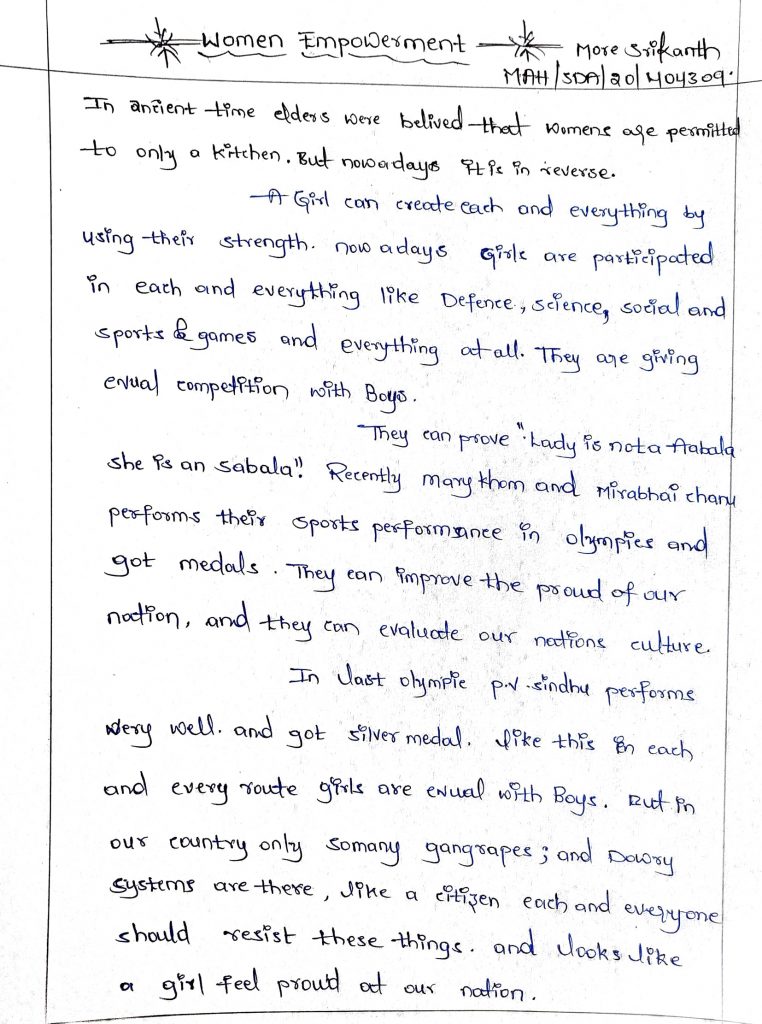 Women Empowerment
More Srikanth
MAH/SDA/20/M04309.
In antient time elders were belived that womens are permitted
to only a kitchen. But nowadays it is in reverse.
A Girl can create each and everything by
using their strength. now a days Girls are participated
in each and everything like Defence, science, social and
sports & games and everything at all. They are giving
enual competition with Boys.
They can prove "Lady is not a Aabala
she is an sabala". Recently mary khom and Mirabhai chanu
performs their sports performance in olympics and
got medals. They can improve the proud of our
nation, and they can evaluate our nations culture.
In last olympic p.v.sindhu performs
very well. and got silver medal. like this in each
and every route girls are enual with Boys. But in
our country only somany gangrapes; and Dowry
systems are there, like a citizen each and everyone
should resist these things. and looks like
a girl feel proud at our nation.